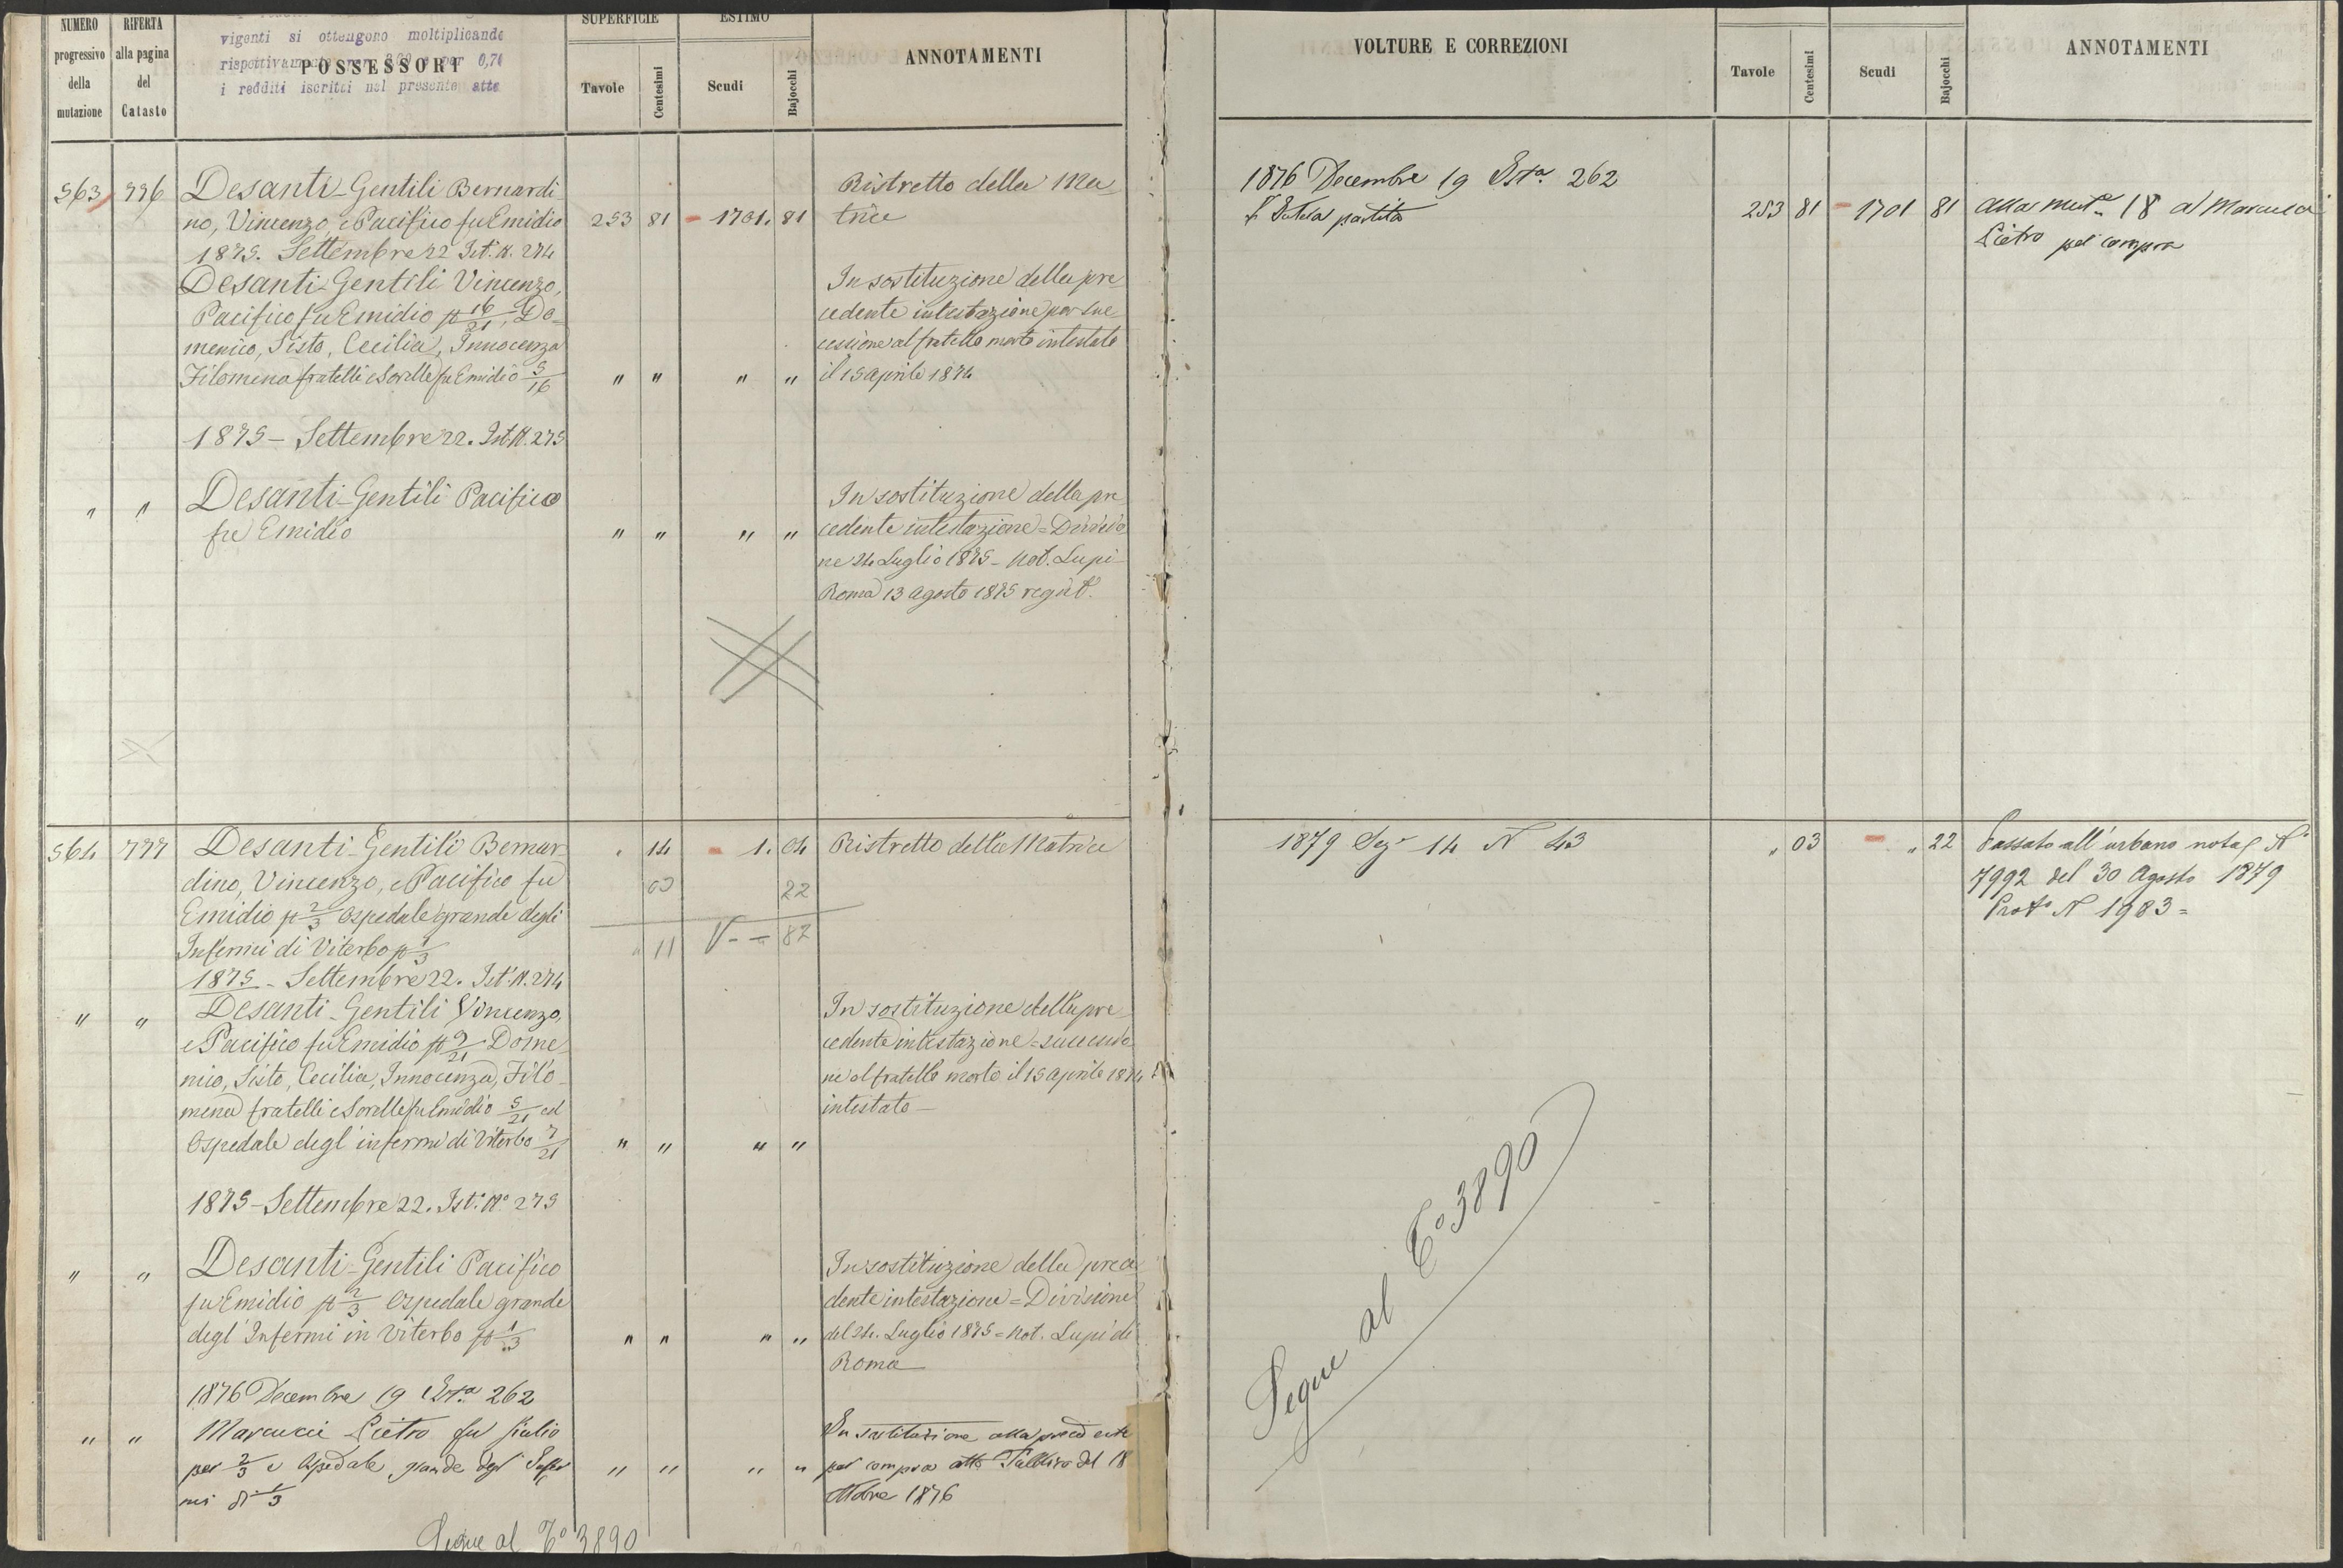 NUMERO progressivo della mutazione
RIFERTA alla pagina del Catasto
POSSESSORI
vigenti si ottengono moltiplicando
rispettivamente per 3,60 e per 0,74
i redditi iscritti nel presente atto
SUPERFICIE
Tavole
Centesimi
ESTIMO
Scudi
Bajocchi
ANNOTAMENTI
563 776 Desanti-Gentili Bernardi Ristretto della Ma
no, Vincenzo, e Pacifico fu Emidio 253 81 1701. 81 trice
1875. Settembre 22 Ist. N. 274
Desanti-Gentili Vincenzo, In sostituzione della pre
Pacifico fu Emidio p 16/21, Do- cedente intestazione per suc
menico, Sisto, Cecilia, Innocenza cessione al fratello morto intestato
Filomena fratelli e Sorelle fu Emidio 5/16 " " " " il 15 aprile 1874
1875 - Settembre 22. Ist. N. 275
" " Desanti-Gentili Pacifico In sostituzione della pre
fu Emidio " " " " cedente intestazione = Divisio
ne 24 Luglio 1875 - Not. Lupi
Roma 13 agosto 1875 regist.
564 777 Desanti-Gentili Bernar- " 14 1. 04 Ristretto della Matrice
dino, Vincenzo, e Pacifico fu 03 22
Emidio p 2/3 Ospedale grande degli
Infermi di Viterbo p 1/3 " 11 V - - 82
1875 - Settembre 22. Ist. N. 274
" " Desanti-Gentili Vincenzo, In sostituzione della pre
e Pacifico fu Emidio p 9/21 Dome cedente intestazione = successio
nico, Sisto, Cecilia, Innocenza, Filo- ne al fratello morto il 15 aprile 1874
mena fratelli e Sorelle fu Emidio 5/21 ed intestato -
Ospedale degl'infermi di Viterbo 7/21 " " " "
1875 - Settembre 22. Ist. N.° 275
" " Desanti-Gentili Pacifico In sostituzione della prece
fu Emidio p 2/3 Ospedale grande dente intestazione = Divisione
degl'Infermi in Viterbo p 1/3 " " " " del 24. Luglio 1875 = Not. Lupi di
Roma
1876 Decembre 19 Ista 262
" " Marcucci Pietro fu Giulio In sostituzione alla precedente
per 2/3 e Ospedale grande degl' Infer " " " " per compra atto del 18
mi 1/3 ottobre 1876
Segue al 3890
VOLTURE E CORREZIONI
Tavole
Centesimi
Scudi
Bajocchi
ANNOTAMENTI
1876 Decembre 19 Ista 262
partita 253 81 1701 81 Alla mut. 18 a Marcucci
Pietro per compra
1879 14 N 43 " 03 " 22 Passato all'urbano nota N°
7992 del 30 Agosto 1879
Prot° N 1983 =
Segue al 3890